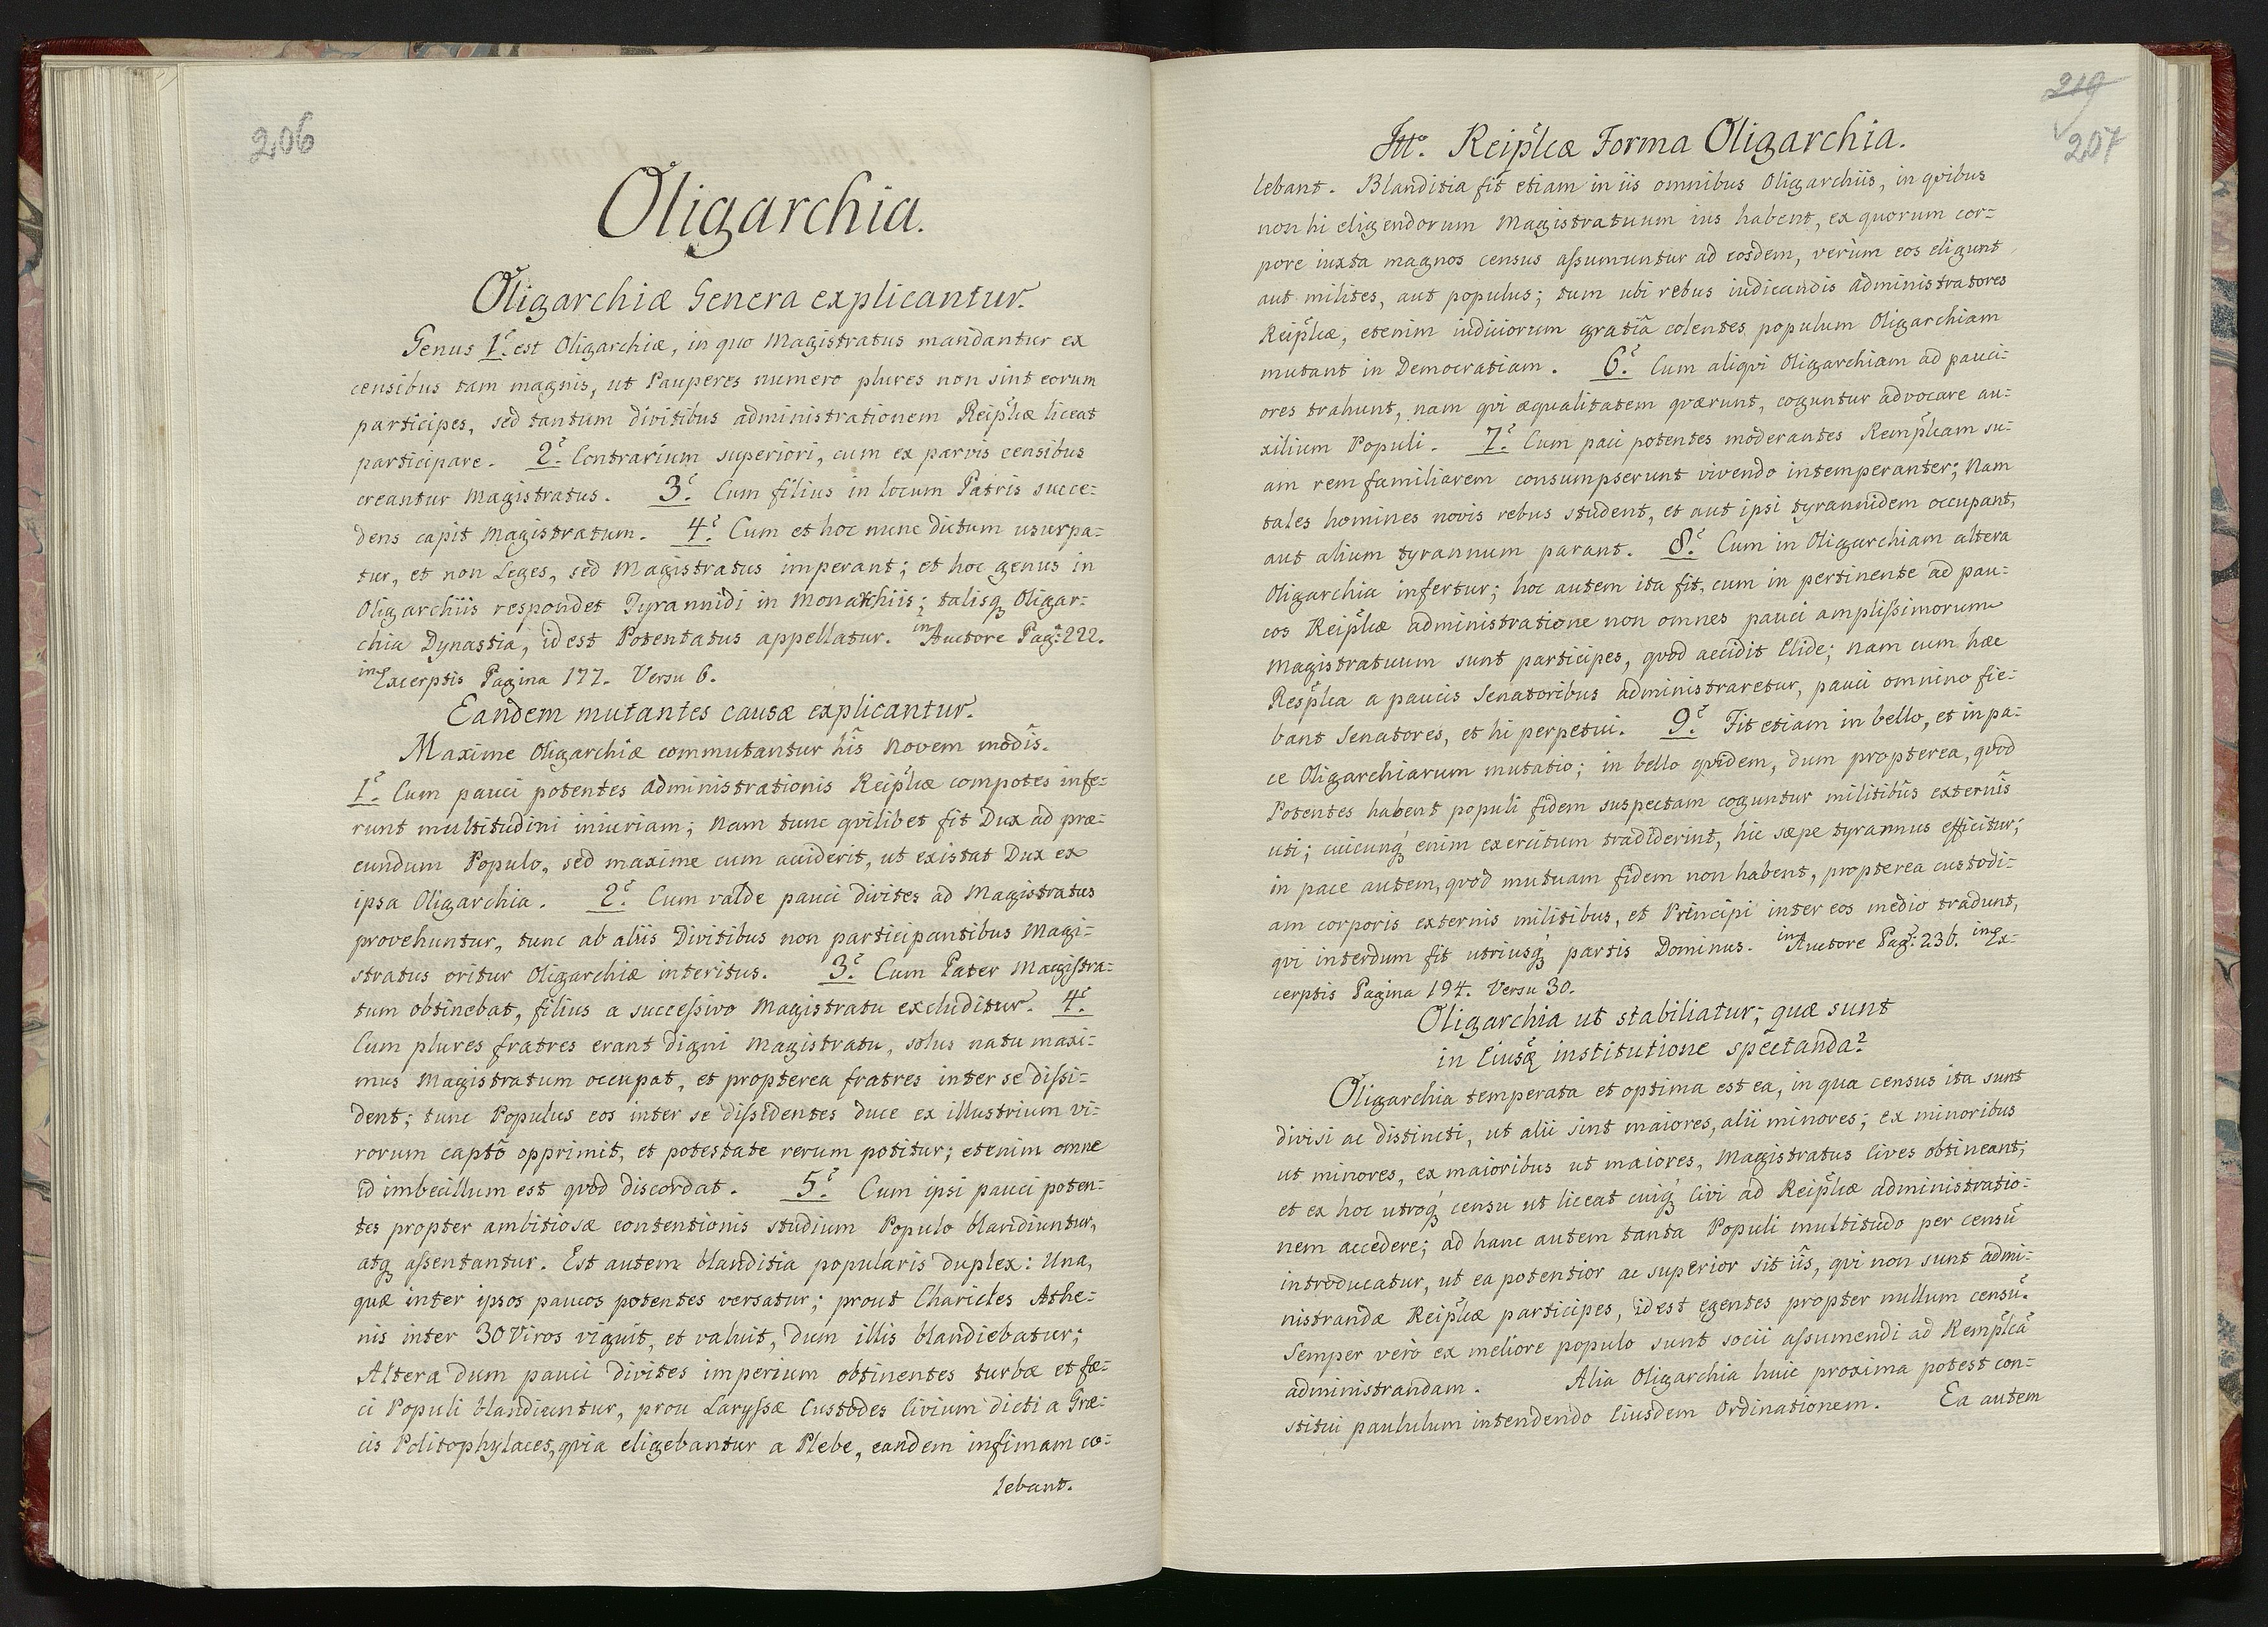 206
Oligarchia.
Oligarchiæ Genera explicantur.
Genus 1.̃ est Oligarchiæ, in quo Magistratus mandantur ex
censibus tam magnis, ut Pauperes numero plures non sint eorum
participes, sed tantum divitibus administrationem Reip̃licæ liceat
participare. 2.̃ Contrarium superiori, cum ex parvis censibus
creantur Magistratus. 3.̃ Cum filius in locum Patris succe=
dens capit Magistratum. 4.̃ Cum et hoc nunc dictum usurpa=
tur, et non Leges, sed Magistratus imperant; et hoc genus in
Oligarchiis respondet Tyrannidi in Monarchiis; talisq; Oligar=
chia Dynastia, id est Potentatus appellatur. in Auctore Pag: 222.
in Excerptis Pagina 177. Versu 6.
Eandem mutantes causæ explicantur.
Maxime Oligarchiæ commutantur his̃ Novem modis.
1.̃ Cum pauci potentes administrationis Reip̃licæ compotes infe=
runt multitudini iniuriam; Nam tunc qvilibet fit Dux ad præ=
eundum Populo, sed maxime cum acciderit, ut existat Dux ex
ipsa Oligarchia. 2.̃ Cum valde pauci divites ad Magistratus
provehuntur, tunc ab aliis Divitibus non participantibus Magi=
stratus oritur Oligarchiæ interitus. 3.̃ Cum Pater Magistra=
tum obtinebat, filius a succeſsivo Magistratu excluditur. 4.̃
Cum plures fratres erant digni Magistratu, solus natu maxi=
mus Magistratum occupat, et propterea fratres inter se diſsi=
dent; tunc Populus eos inter se diſsidentes duce ex illustrium vi=
rorum captõ opprimit, et potestate rerum potitur; etenim omne
id imbecillum est qvod discordat. 5.̃ Cum ipsi pauci poten=
tes propter ambitiosæ contentionis studium Populo blandiuntur,
atq; aſsentantur. Est autem blanditia popularis duplex: Una,
quæ inter ipsos paucos potentes versatur; prout Charicles Athe=
nis inter 30 Viros viguit, et valuit, dum illis blandiebatur;
Altera dum pauci divites imperium obtinentes turbæ et fæ=
ci Populi blandiuntur, prou Laryſsæ Custodes Civium dicti a Græ=
cis Politophylaces, qvia eligebantur a Plebe, eandem infimam co=
lebant.
219
207
III.o Reip̃licæ Forma Oligarchia.
lebant. Blanditia fit etiam in iis omnibus Oligarchiis, in qvibus
non hi eligendorum Magistratuum ius habent, ex quorum cor=
pore iuxta magnos census aſsumuntur ad eosdem, verùm eos eligunt
aut milites, aut populus; tum ubi rebus iudicandis administratores
Reip̃licæ, etenim iudiciorum gratiâ colentes populum Oligarchiam
mutant in Democratiam. 6.̃ Cum aliqvi Oligarchiam ad pauci=
ores trahunt, nam qvi æqualitatem qværunt, coguntur advocare au=
xilium Populi. 7.̃ Cum pauci potentes moderantes Remp̃licam su=
am rem familiarem consumpserunt vivendo intemperanter; Nam
tales homines novis rebus student, et aut ipsi tyrannidem occupant,
aut alium tyrannum parant. 8.̃ Cum in Oligarchiam altera
Oligarchia infertur; hoc autem ita fit, cum in pertinente ad pau=
cos Reip̃licæ administratione non omnes pauci ampliſsimorum
Magistratuum sunt participes, qvod accidit Elide; nam cum hæc
Resp̃lica a paucis Senatoribus administraretur, pauci omnino fie=
bant Senatores, et hi perpetui. 9.̃ Fit etiam in bello, et in pa=
ce Oligarchiarum mutatio; in bello qvidem, dum propterea, qvod
Potentes habent populi fidem suspectam coguntur militibus̃ externis̃
uti; cuicunq; enim exercitum tradiderint, hic sæpe tyrannus efficitur;
in pace autem, qvod mutuam fidem non habent, propterea custodi=
am corporis externis militibus, et Principi inter eos medio tradunt,
qvi interdum fit utriusq; partis Dominus. in Auctore Pag: 236. in Ex=
cerptis Pagina 194. Versu 30.
Oligarchia ut stabiliatur; quæ sunt
in Eiusq; institutione spectanda?
Oligarchia temperata et optima est ea, in qua census ita sunt
divisi ac distincti, ut alii sint maiores, alii minores; ex minoribus
ut minores, ex maioribus ut maiores, Magistratus Cives obtineant;
et ex hoc utroq; censu ut liceat cuiq; Civi ad Reip̃licæ administratio=
nem accedere; ad hanc autem tanta Populi multitudo per censũ
introducatur, ut ea potentior ac superior sit iis̃, qvi non sunt admi=
nistrandæ Reip̃licæ participes, id est egentes propter nullum censũ.
Semper verò ex meliore populo sunt socii aſsumendi ad Remp̃licã
administrandam. Alia Oligarchia huic proxima potest con=
stitui paululum intendendo Eiusdem Ordinationem. Ea autem